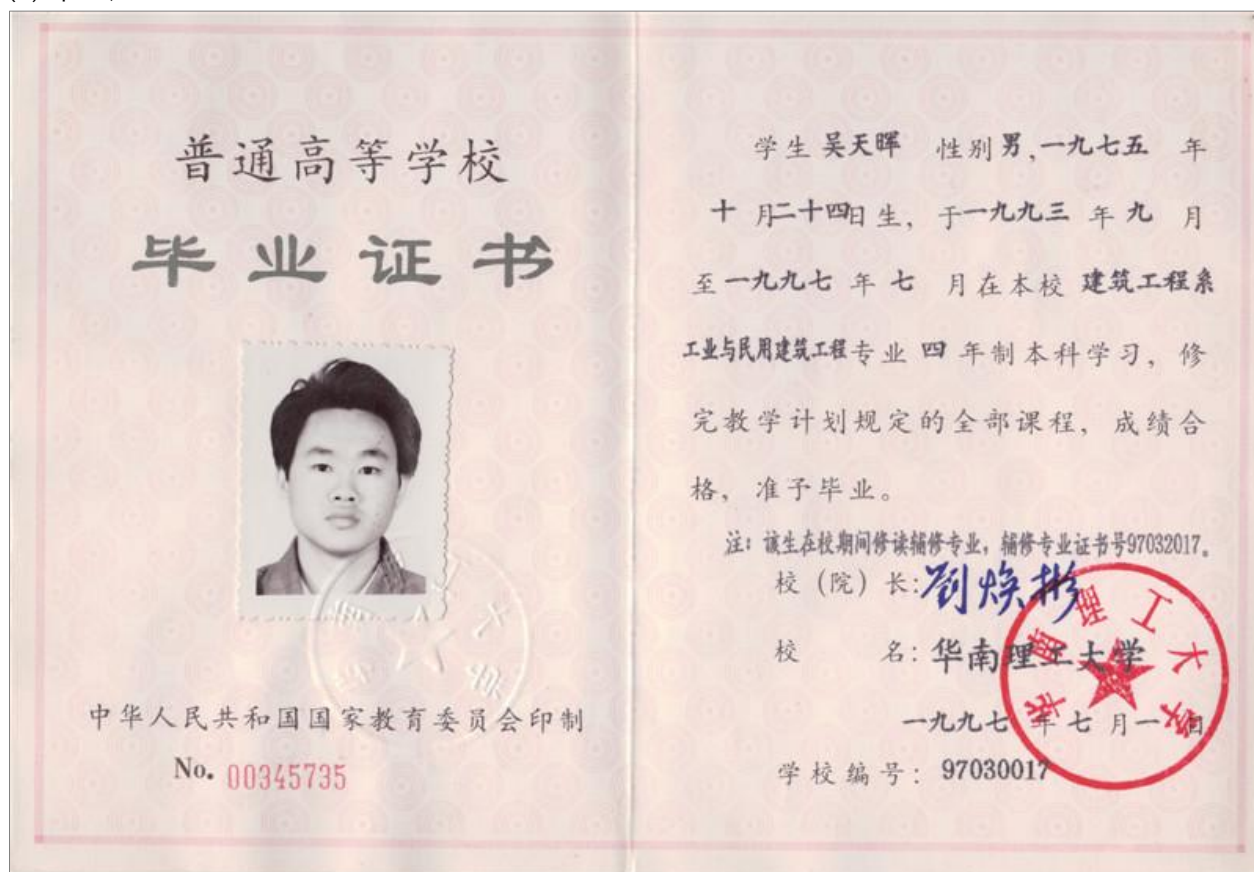 普通高等学校
毕业证书
中华人民共和国国家教育委员会印制
No. 00345735
学生 吴天晖 性别 男, 一九七五 年
十 月 二十四 日生, 于 一九九三 年 九 月
至 一九九七 年 七 月在本校 建筑工程系
工业与民用建筑工程 专业 四 年制本科学习, 修
完教学计划规定的全部课程, 成绩合
格, 准予毕业。
注: 该生在校期间修读辅修专业, 辅修专业证书号97032017。
校 (院) 长: 劉焕彬
校 名: 华南理工大学
一九九七 年 七 月 一 日
学校编号: 97030017
华南理工大学